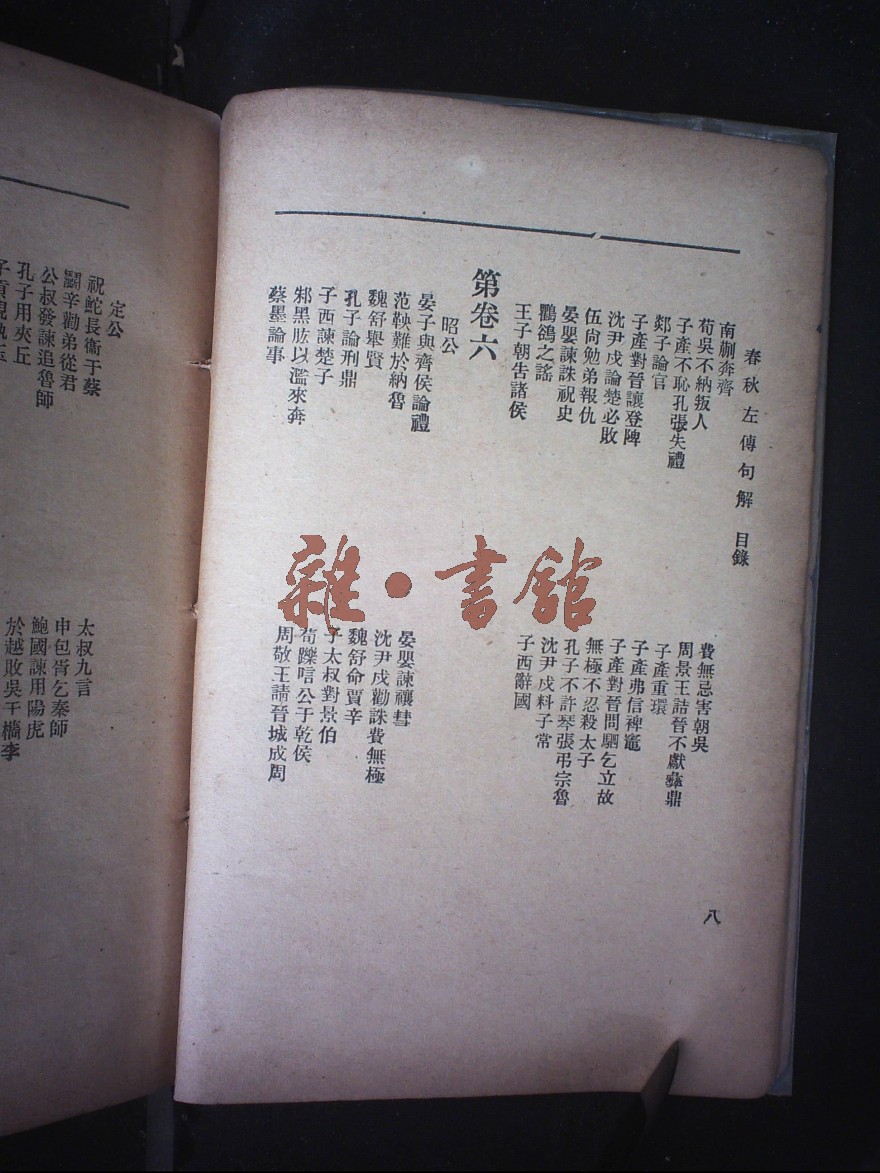 春秋左傳句解 目錄
八
南蒯奔齊
費無忌害朝吳
荀吳不納叛人
周景王詰晉不獻彝鼎
子產不恥孔張失禮
子產重環
郯子論官
子產弗信裨竈
子產對晉讓登陴
子產對晉問駟乞立故
沈尹戌論楚必敗
無極不忍殺太子
伍尙勉弟報仇
孔子不許琴張弔宗魯
晏嬰諫誅祝史
沈尹戌料子常
鸜鵒之謠
子西辭國
王子朝吿諸侯
第卷六
昭公
晏子與齊侯論禮
晏嬰諫禳彗
范鞅難於納魯
沈尹戌勸誅費無極
魏舒舉賢
魏舒命賈辛
孔子論刑鼎
子太叔對景伯
子西諫楚子
荀躒唁公于乾侯
邾黑肱以濫來奔
周敬王請晉城成周
蔡墨論事
雜·書館
定公
祝鮀長衞于蔡
太叔九言
鬭辛勸弟從君
申包胥乞秦師
公叔發諫追魯師
鮑國諫用陽虎
孔子用夾丘
於越敗吳于檇李